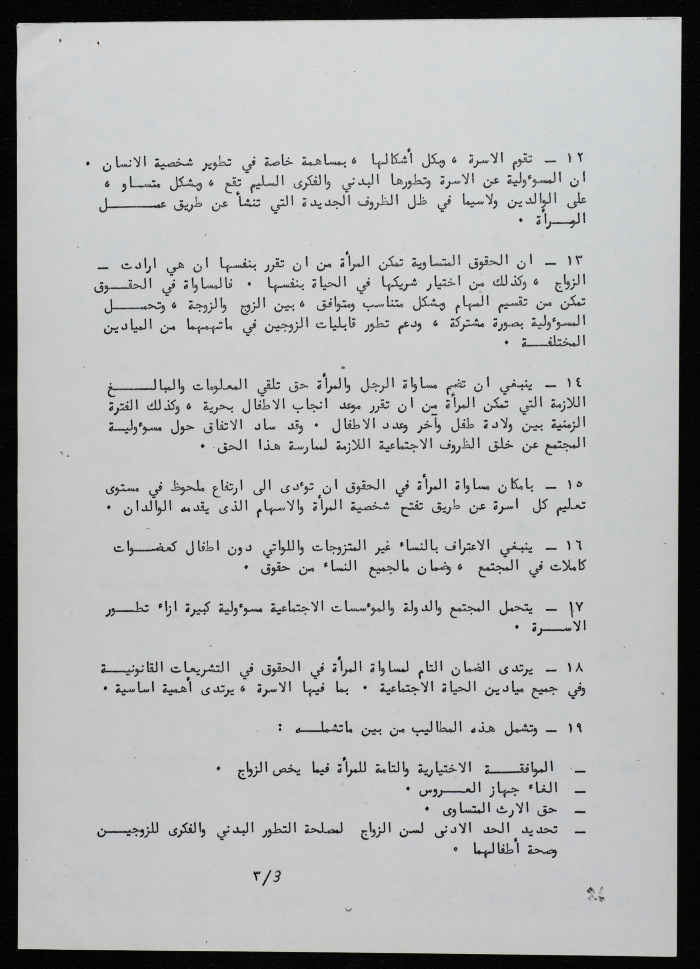 ١٢ ــ تقوم الاسرة ، وبكل أشكالها ، بمساهمة خاصة في تطوير شخصية الانسان ٠
ان المسوءولية عن الاسرة وتطورها البدني والفكرى السليم تقع ، وبشكل متساو ،
على الوالدين ولاسيما في ظل الظروف الجديدة التي تنشأ عن طريق عمـــــــل
المـــرأة ٠
١٣ ــ ان الحقوق المتساوية تمكن المرأة من ان تقرر بنفسها ان هي ارادت ــ
الزواج ، وكذلك من اختيار شريكها في الحياة بنفسها ٠ فالمساواة في الحقـــوق
تمكن من تقسيم المهام وبشكل متناسب ومتوافق ، بين الزوج والزوجة ، وتحمـــل
المسوءولية بصورة مشتركة ، ودعم تطور قابليات الزوجين في ماتهمهما من الميادين
المختلفـــة ٠
١٤ ــ ينبغي ان تضم مساواة الرجل والمرأة حق تلقي المعلومات والمبالـــــغ
اللازمة التي تمكن المرأة من ان تقرر موعد انجاب الاطفال بحرية ، وكذلك الفترة
الزمنية بين ولادة طفل وآخر وعدد الاطفال ٠ وقد ساد الاتفاق حول مسوءوليـــة
المجتمع عن خلق الظروف الاجتماعية اللازمة لممارسة هذا الحق ٠
١٥ ــ بامكان مساواة المرأة في الحقوق ان توءدى الى ارتفاع ملحوظ في مستوى
تعليم كل اسرة عن طريق تفتح شخصية المرأة والاسهام الذى يقدمه الوالدان ٠
١٦ ــ ينبغي الاعتراف بالنساء غير المتزوجات واللواتي دون اطفال كعضـــوات
كاملات في المجتمع ، وضمان مالجميع النساء من حقوق ٠
١٧ ــ يتحمل المجتمع والدولة والموءسسات الاجتماعية مسوءولية كبيرة ازاء تطـــور
الاســـرة ٠
١٨ ــ يرتدى الضمان التام لمساواة المرأة في الحقوق في التشريعات القانونيـــة
وفي جميع ميادين الحياة الاجتماعية ٠ بما فيها الاسرة ، يرتدى أهمية اساسية ٠
١٩ ــ وتشمل هذه المطاليب من بين ماتشملـــه :
ــ الموافقـــة الاختيارية والتامة للمرأة فيما يخص الزواج ٠
ــ الغاء جهاز العـــروس ٠
ــ حق الارث المتساوى ٠
ــ تحديد الحد الادنى لسن الزواج لمصلحة التطور البدني والفكرى للزوجيـــن
وصحة أطفالهما ٠
٣/3